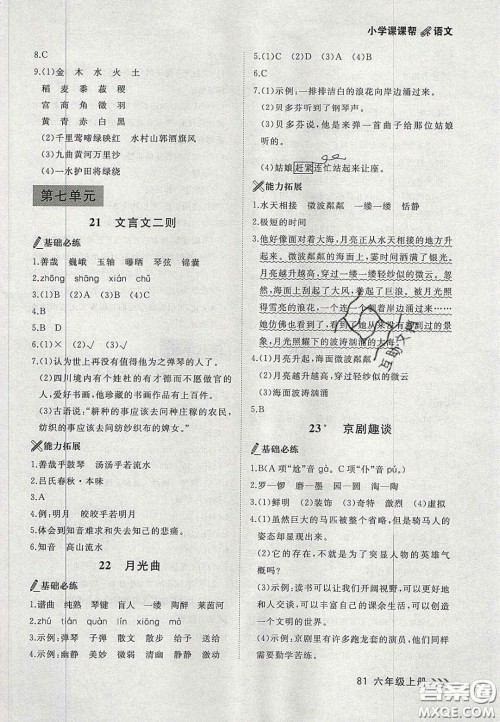 小学课课帮 语文
8.C
9.(1)金 木 水 火 土
稻 麦 黍 菽 稷
宫 商 角 徵 羽
黄 青 赤 白 黑
(2)千里莺啼绿映红 水村山郭酒旗风
(3)九曲黄河万里沙
(4)一水护田将绿绕
第七单元
21 文言文二则
基础必练
1.善哉 巍峨 玉轴 曝晒 琴弦 锦囊
2.zhōng shāng xián chǔ
3.(1)D (2)A (3)B (4)C
4.B
5.B D
6.(1)× (2)√ (3)√
7.(1)认为世上再没有值得他为之弹琴的人了。
(2)四川境内有个姓杜的有才德而不愿做官的人,他珍藏的书画作品有上百件。
(3)古语说:"耕种的事应该去问种庄稼的农民,
纺织的事应该去问纺纱织布的婢女。"
能力拓展
1.善哉乎鼓琴 汤汤乎若流水
2.吕氏春秋·本味
3.A
4.例:明月 皎皎乎若明月
5.体会到知音难求和失去知己的悲痛。
6.知音 高山流水
22 月光曲
基础必练
1.谱曲 纯熟 琴键 盲人 一缕 陶醉 莱茵河
2.A
3.示例:弹琴 子弹 散文 散步 给予 送给
4.示例:幽静 安静 清静 宁静
5.(1)C (2)A (3)B (4)D
6.C
7.(1)示例:一排排洁白的浪花向岸边涌过来。
(2)贝多芬听到了钢琴声。
(3)贝多芬说,他是来弹一首曲子给那位姑娘
听的。
(4)姑娘赶紧连忙站起来让座。
能力拓展
1.水天相接 微波粼粼 一缕一缕 恬静
2.极短的时间
3.他好像面对着大海,月亮正从水天相接的地方升
起来。微波粼粼的海面上,霎时间洒满了银光。
月亮越升越高,穿过一缕一缕轻纱似的微云。忽
然,海面上刮起了大风,卷起了巨浪。被月光照
得雪亮的浪花,一个连一个朝着岸边涌过来……
她仿佛也看到了,看到了她从来没有看到过的景
象,月光照耀下的波涛汹涌的大海。
4.(1)月亮升起,海面微波粼粼
(2)月亮升高,穿过轻纱似的微云
(3)海面波涛汹涌
5.B
23* 京剧趣谈
基础必练
1.B(A项"尬"音gà。C项"仆"音pú。)
2.罗—锣 磨—墨 同—铜 园—圆
3.(1)鲜明 (2)装饰 (3)奇特 激烈 (4)虚拟
4.(1)虽然巨大的马匹被整个省略,但是骑马人的
姿态却变得无比鲜明。
(2)它的存在,不就是为了突显人物的英雄气
概吗?
(3)示例:读书可以让我们开阔视野,可以使我
们更文明,可以丰富自己的课余生活,可以创
造一个文明的世界。
(4)示例:京剧里有许多跑龙套的演员,他们很
勤奋,其中有不少人天不亮就起床去练习开嗓
81 六年级上册
答案圈